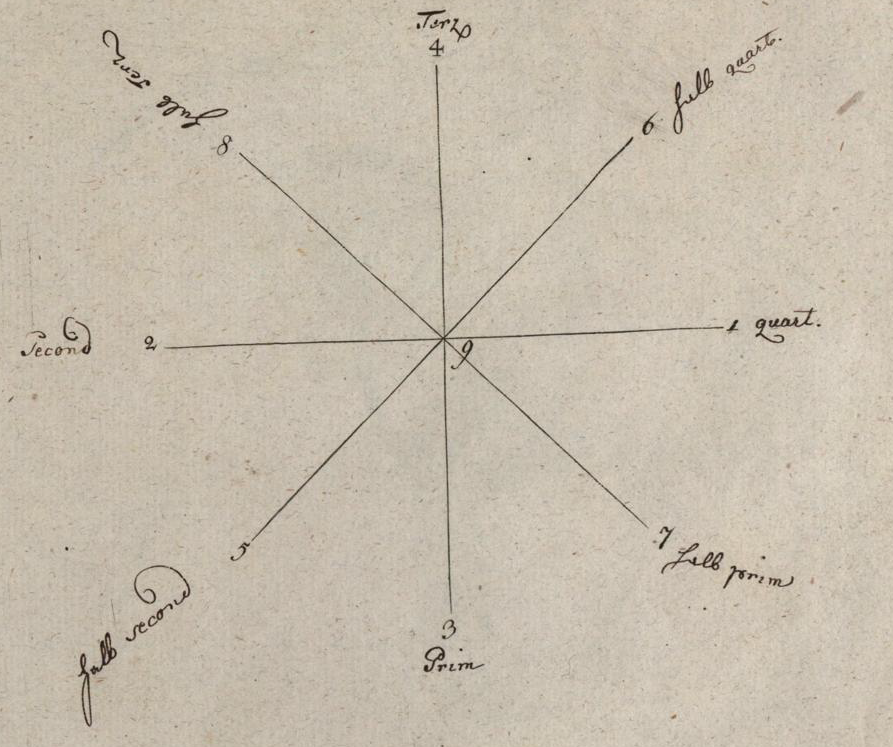 Terz
4
6 halb quart.
halb Terz
8
1 quart.
Second 2
9
5
halb second
7 halb prim
3
Prim